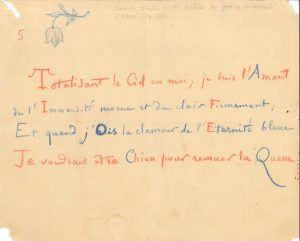 5
Totalisant le Ciel en moi, je suis l'Amant
de l'Immensité morne et du clair Firmament;
Et quand j'Ois la clameur de l'Eternité bleue
Je voudrais être Chien pour remuer la Queue.